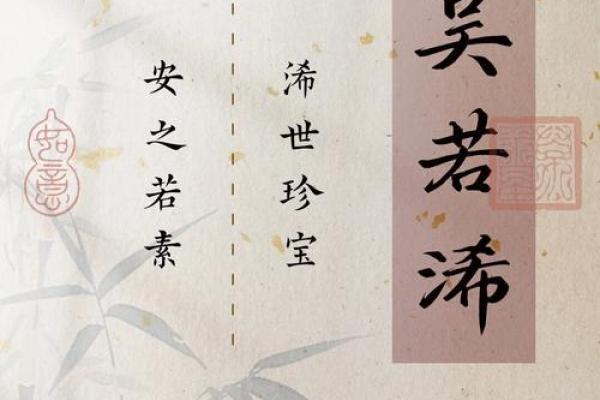 吴若浠
浠世珍宝
安之若素
如意